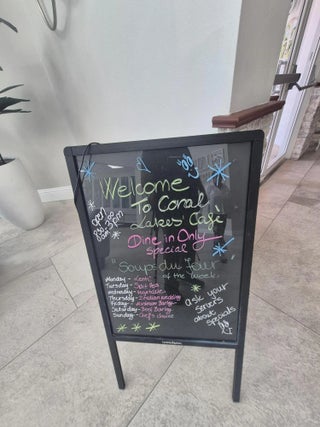 Welcome
To Coral
Lakes Cafè
Dine in Only
Special
open
"Soups du Jour"
of the week
Monday -
Tuesday - Split Pea
Wednesday - Vegetable
Thursday - Italian Wedding
Friday - Mushroom Barley
Saturday - Beef Barley
Sunday - Chef's choice
ask your
servers
about
specials